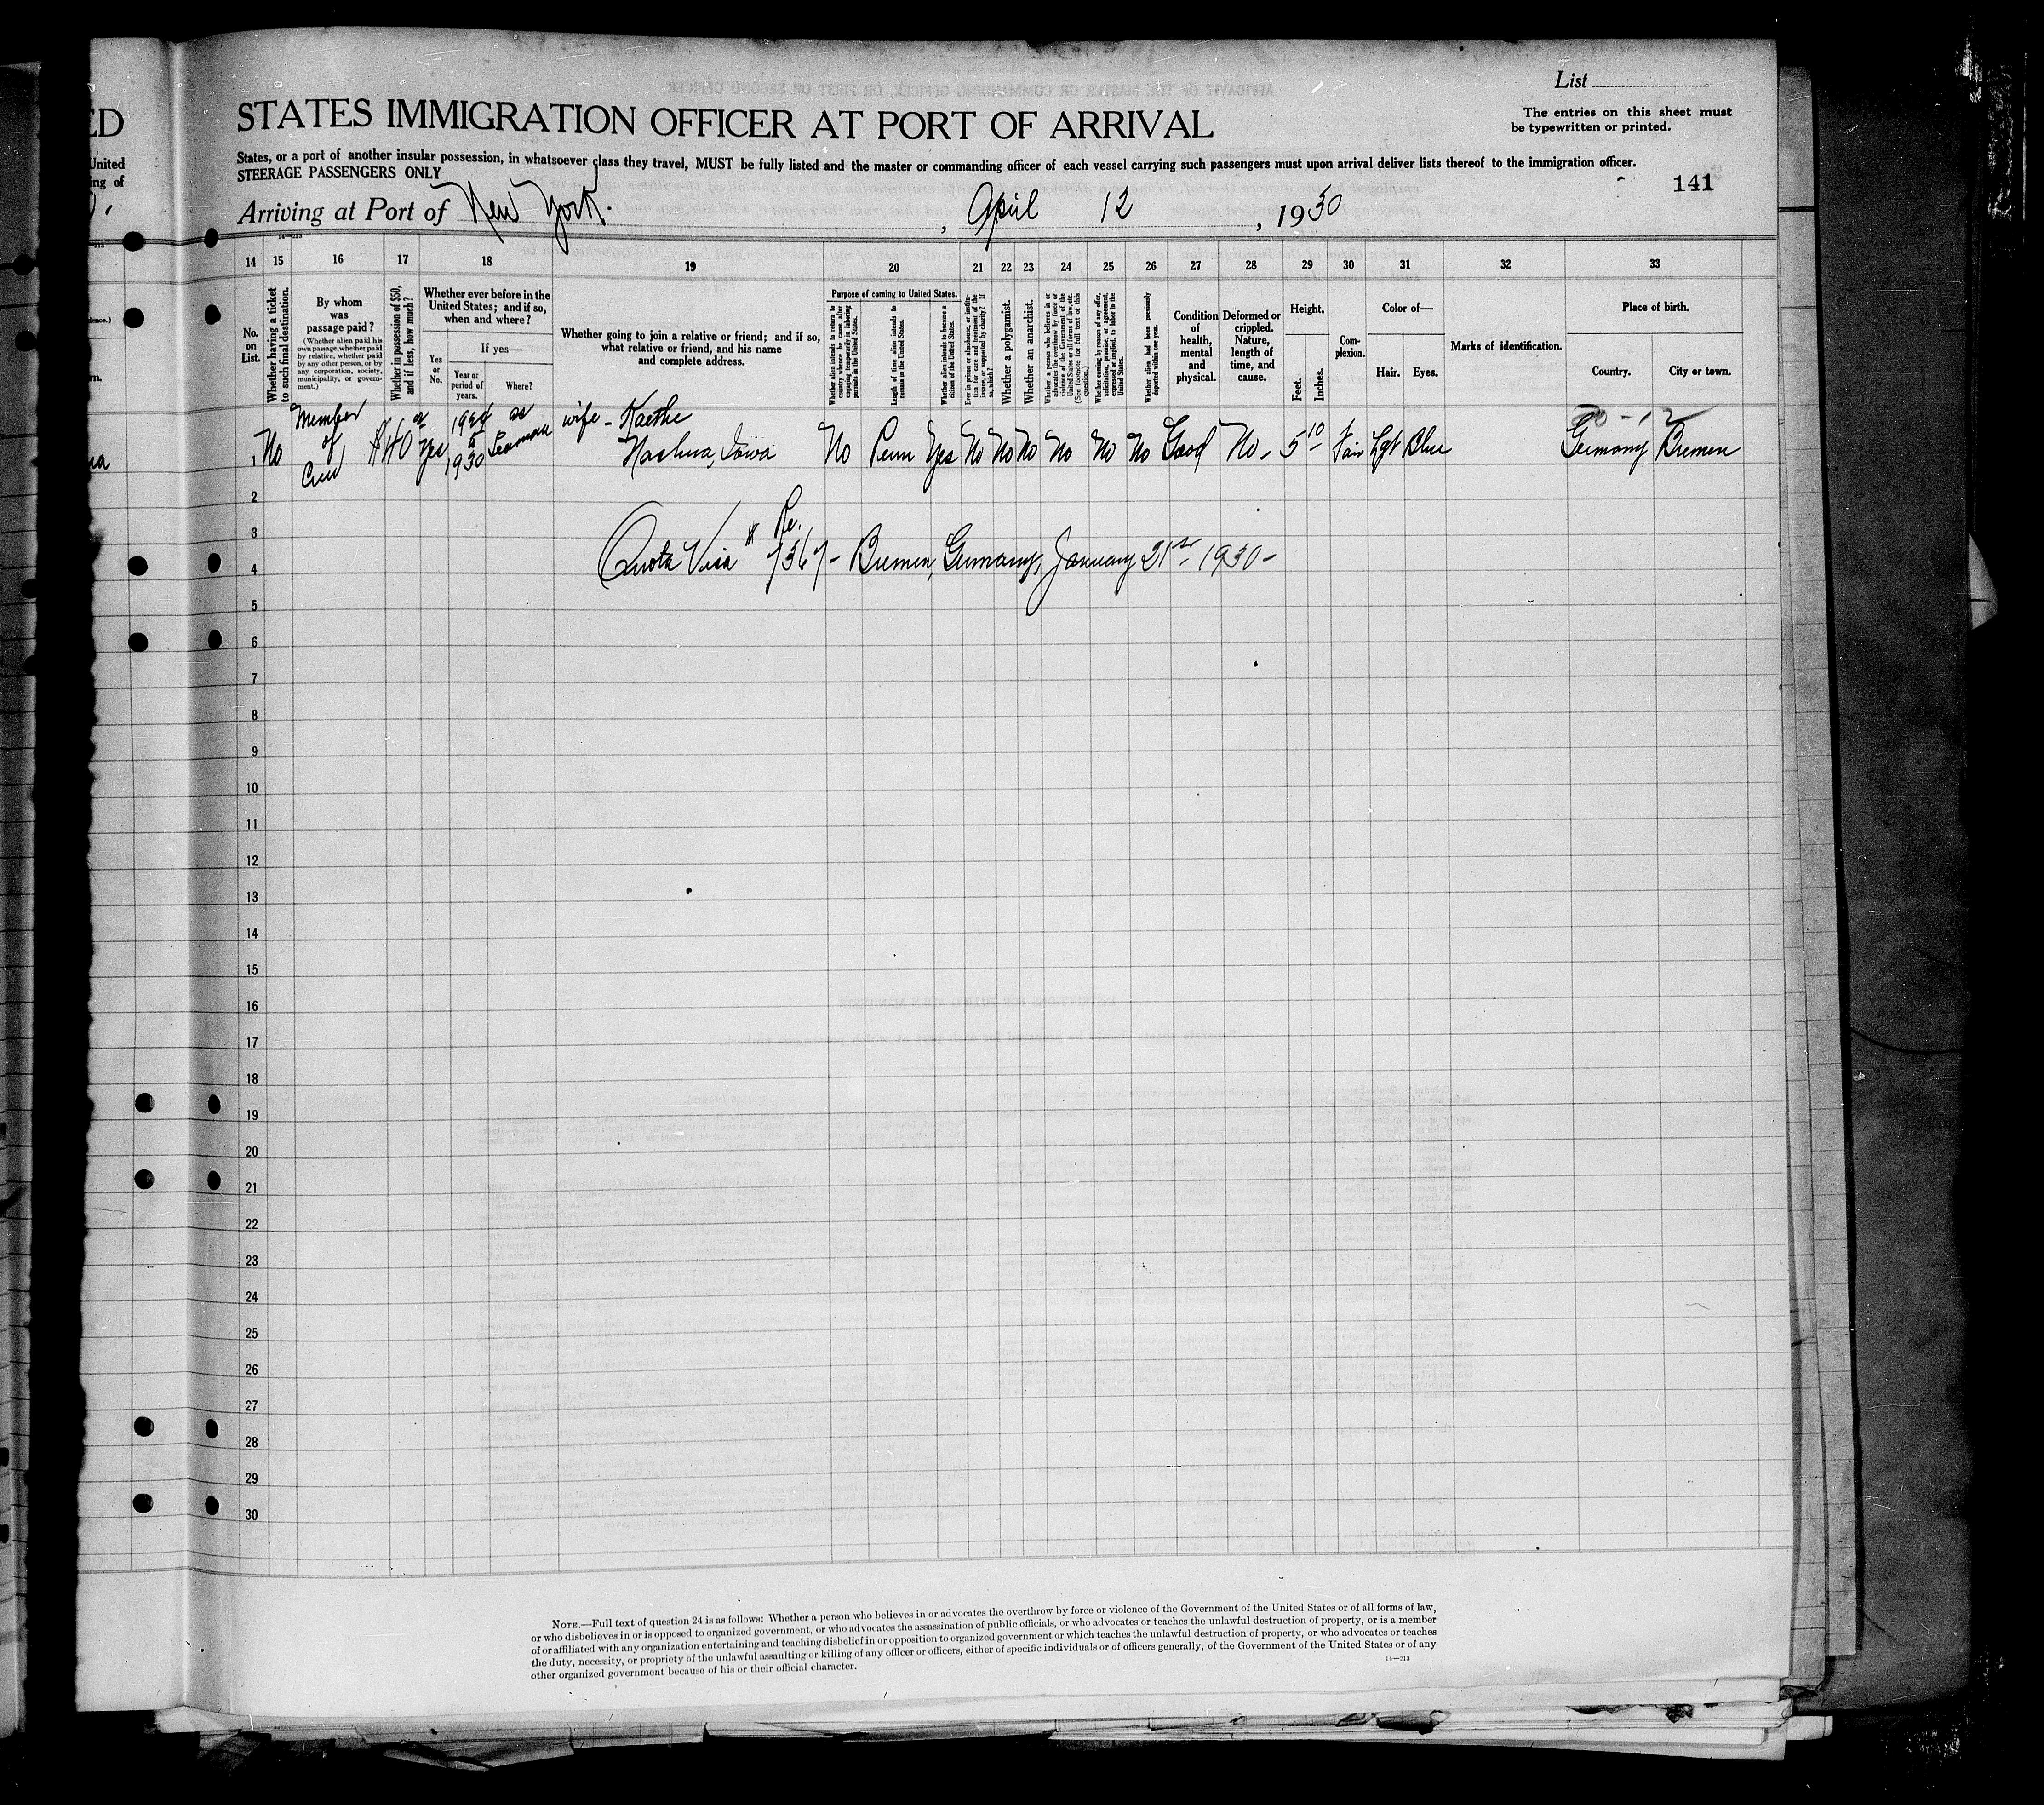 List
ED
STATES IMMIGRATION OFFICER AT PORT OF ARRIVAL
The entries on this sheet must
be typewritten or printed.
United
ing of
States, or a port of another insular possession, in whatsoever class they travel, MUST be fully listed and the master or commanding officer of each vessel carrying such passengers must upon arrival deliver lists thereof to the immigration officer.
STEERAGE PASSENGERS ONLY
141
Arriving at Port of New York. , April 12 , 1930
14—213
14 15 16 17 18 19 20 21 22 23 24 25 26 27 28 29 30 31 32 33
No. on List.
Whether having a ticket to such final destination.
By whom was passage paid?
(Whether alien paid his own passage, whether paid by relative, whether paid by any other person, or by any corporation, society, municipality, or government.)
Whether in possession of $50, and if less, how much?
Whether ever before in the United States; and if so, when and where?
Yes or No.
If yes—
Year or period of years.
Where?
Whether going to join a relative or friend; and if so, what relative or friend, and his name and complete address.
Purpose of coming to United States.
Whether alien intends to return to country whence he came after engaging temporarily in laboring pursuits in the United States.
Length of time alien intends to remain in the United States.
Whether alien intends to become a citizen of the United States.
Ever in prison or almshouse, or institution for care and treatment of the insane, or supported by charity? If so, which?
Whether a polygamist.
Whether an anarchist.
Whether a person who believes in or advocates the overthrow by force or violence of the Government of the United States or all forms of law, etc. (See footnote for full text of this question.)
Whether coming by reason of any offer, solicitation, promise, or agreement, expressed or implied, to labor in the United States.
Whether alien had been previously deported within one year.
Condition of health, mental and physical.
Deformed or crippled. Nature, length of time, and cause.
Height.
Feet. Inches.
Complexion.
Color of—
Hair. Eyes.
Marks of identification.
Place of birth.
Country. City or town.
1 No Member of Crew $40 Yes 1924 to 1930 as Seaman wife - Kaethe
Nashua, Iowa No Perm Yes No No No No No No Good No - 5 10 Fair Lgt Blue Germany Bremen
2
3 Re.
4 Quota Visa # 7367 - Bremen, Germany, January 21st 1930 -
5
6
7
8
9
10
11
12
13
14
15
16
17
18
19
20
21
22
23
24
25
26
27
28
29
30
NOTE.—Full text of question 24 is as follows: Whether a person who believes in or advocates the overthrow by force or violence of the Government of the United States or of all forms of law,
or who disbelieves in or is opposed to organized government, or who advocates the assassination of public officials, or who advocates or teaches the unlawful destruction of property, or is a member
of or affiliated with any organization entertaining and teaching disbelief in or opposition to organized government or which teaches the unlawful destruction of property, or who advocates or teaches
the duty, necessity, or propriety of the unlawful assaulting or killing of any officer or officers, either of specific individuals or of officers generally, of the Government of the United States or of any
other organized government because of his or their official character.
14—213